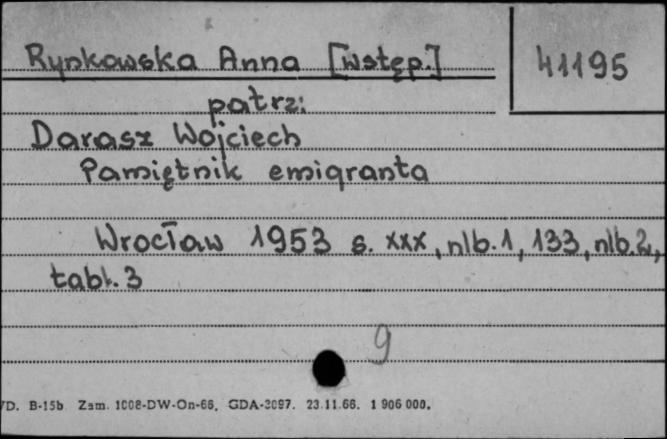 Rynkowska Anna [Wstęp.]
41195
patrz:
Darasz Wojciech
Pamiętnik emigranta
Wrocław 1953 s. XXX, nlb. 1, 133, nlb. 2,
tabl. 3
9
D. B-15b Zam. 1008-DW-On-66. GDA-3097. 23.11.66. 1 906 000.